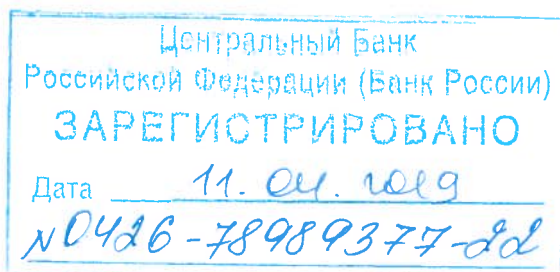 Центральный Банк
Российской Федерации (Банк России)
ЗАРЕГИСТРИРОВАНО
Дата 11. 04. 2019
N0426-78989377-22